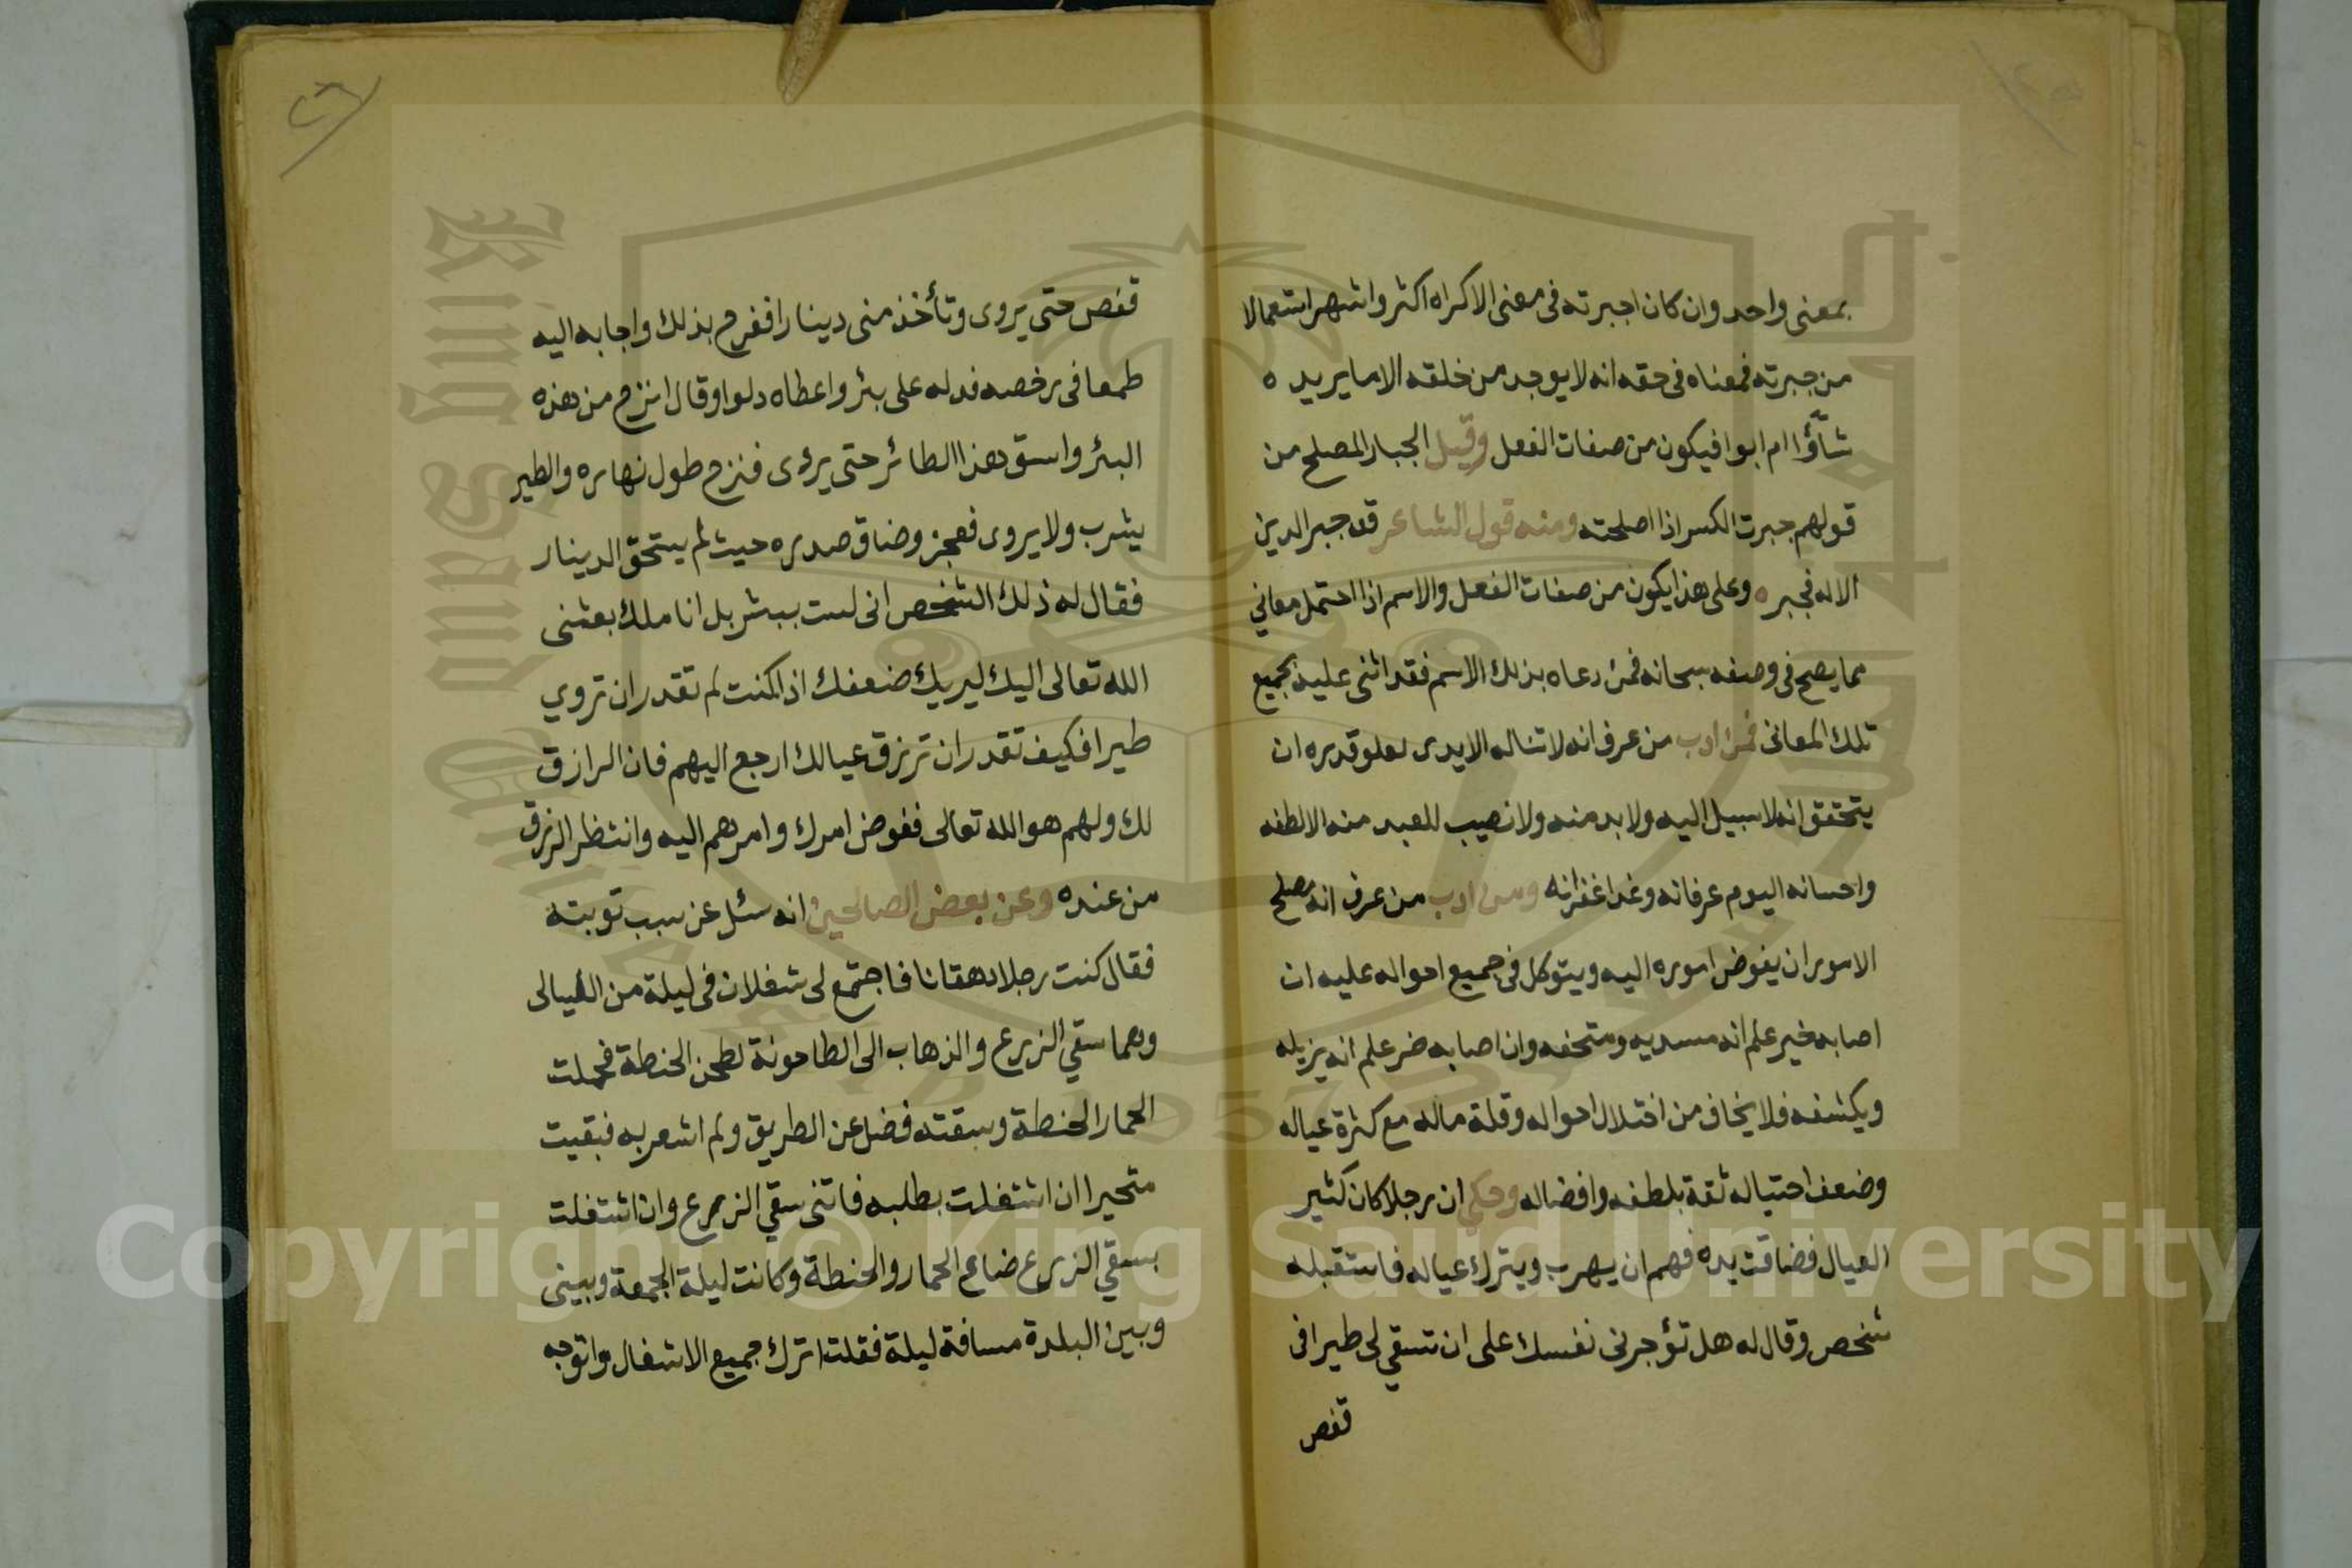 بمعنى واحد وان كان اجبرته فى معنى الاكراه اكثر واشهر استعمالا
من جبرته فمعناه فى حقه انه لا يوجد من خلقه الا ما يريد ه
شاؤا ام ابوا فيكون من صفات الفعل وقيل الجبار المصلح من
قولهم جبرت الكسر اذا اصلحته ومنه قول الشاعر قد جبر الدين
الاله فجبر ه وعلى هذا يكون من صفات الفعل والاسم اذا احتمل معاني
مما يصح فى وصفه سبحانه فمن دعاه بذلك الاسم فقد اثنى عليه بجميع
تلك المعانى فمن ادب من عرف انه لا تناله الايدى لعلو قدره ان
يتحقق انه لا سبيل اليه ولا بد منه ولا نصيب للعبد منه الا لطفه
واحسانه اليوم عرفانه وغدا غفرانه ومن ادب من عرف انه مصلح
الامور ان يفوض اموره اليه ويتوكل فى جميع احواله عليه ان
اصابه خير علم انه مسديه ومتحفه وان اصابه ضر علم انه يزيله
ويكشفه فلا يخاف من اختلال احواله وقلة ماله مع كثرة عياله
وضعف احتياله ثقة بلطفه وافضاله وحكي ان رجلا كان كثير
العيال فضاقت يده فهم ان يهرب ويترك عياله فاستقبله
شخص وقال له هل تؤجرنى نفسك على ان تسقي لى طيرا فى
قفص
٢٦
قفص حتى يروى وتأخذ منى دينارا ففرح بذلك واجابه اليه
طمعا فى رخصه فدله على بئر واعطاه دلوا وقال انزح من هذه
البئر واسق هذا الطائر حتى يروى فنزح طول نهاره والطير
يشرب ولا يروى فعجز وضاق صدره حيث لم يستحق الدينار
فقال له ذلك الشخص انى لست ببشر بل انا ملك بعثنى
الله تعالى اليك ليريك ضعفك اذا كنت لم تقدر ان تروي
طيرا فكيف تقدر ان ترزق عيالك ارجع اليهم فان الرازق
لك ولهم هو الله تعالى ففوض امرك وامرهم اليه وانتظر الرزق
من عنده وعن بعض الصالحين انه سئل عن سبب توبته
فقال كنت رجلا دهقانا فاجتمع لى شغلان فى ليلة من الليالى
وهما سقي الزرع والذهاب الى الطاحونة لطحن الحنطة فحملت
الحمار الحنطة وسقته فضل عن الطريق ولم اشعر به فبقيت
متحيرا ان اشتغلت بطلبه فاتنى سقي الزرع وان اشتغلت
بسقي الزرع ضاع الحمار والحنطة وكانت ليلة الجمعة وبينى
وبين البلدة مسافة ليلة فقلت اترك جميع الاشغال واتوجه
Copyright © King Saud University